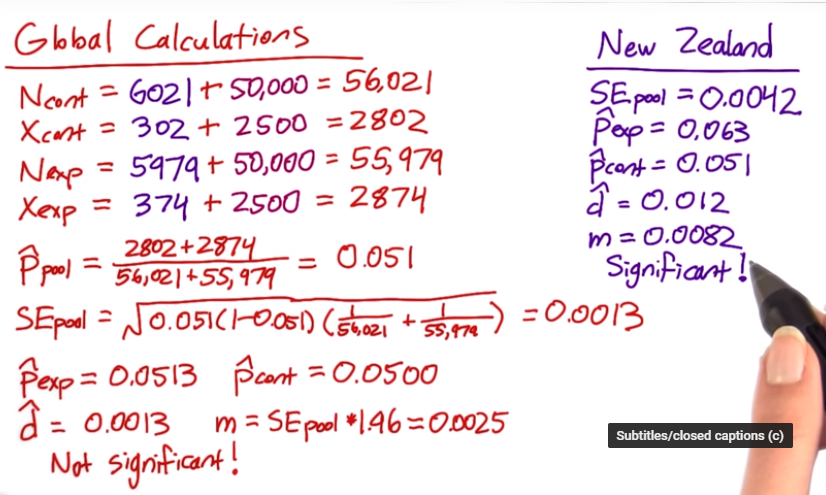 Global Calculations
Ncont = 6021 + 50,000 = 56,021
Xcont = 302 + 2500 = 2802
Nexp = 5979 + 50,000 = 55,979
Xexp = 374 + 2500 = 2874
p̂pool = 2802+2874 / 56,021+55,979 = 0.051
SEpool = √0.051(1-0.051)(1/56,021 + 1/55,979) = 0.0013
p̂exp = 0.0513 p̂cont = 0.0500
d̂ = 0.0013 m = SEpool * 1.96 = 0.0025
Not significant!
New Zealand
SEpool = 0.0042
p̂exp = 0.063
p̂cont = 0.051
d̂ = 0.012
m = 0.0082
Significant!
Subtitles/closed captions (c)